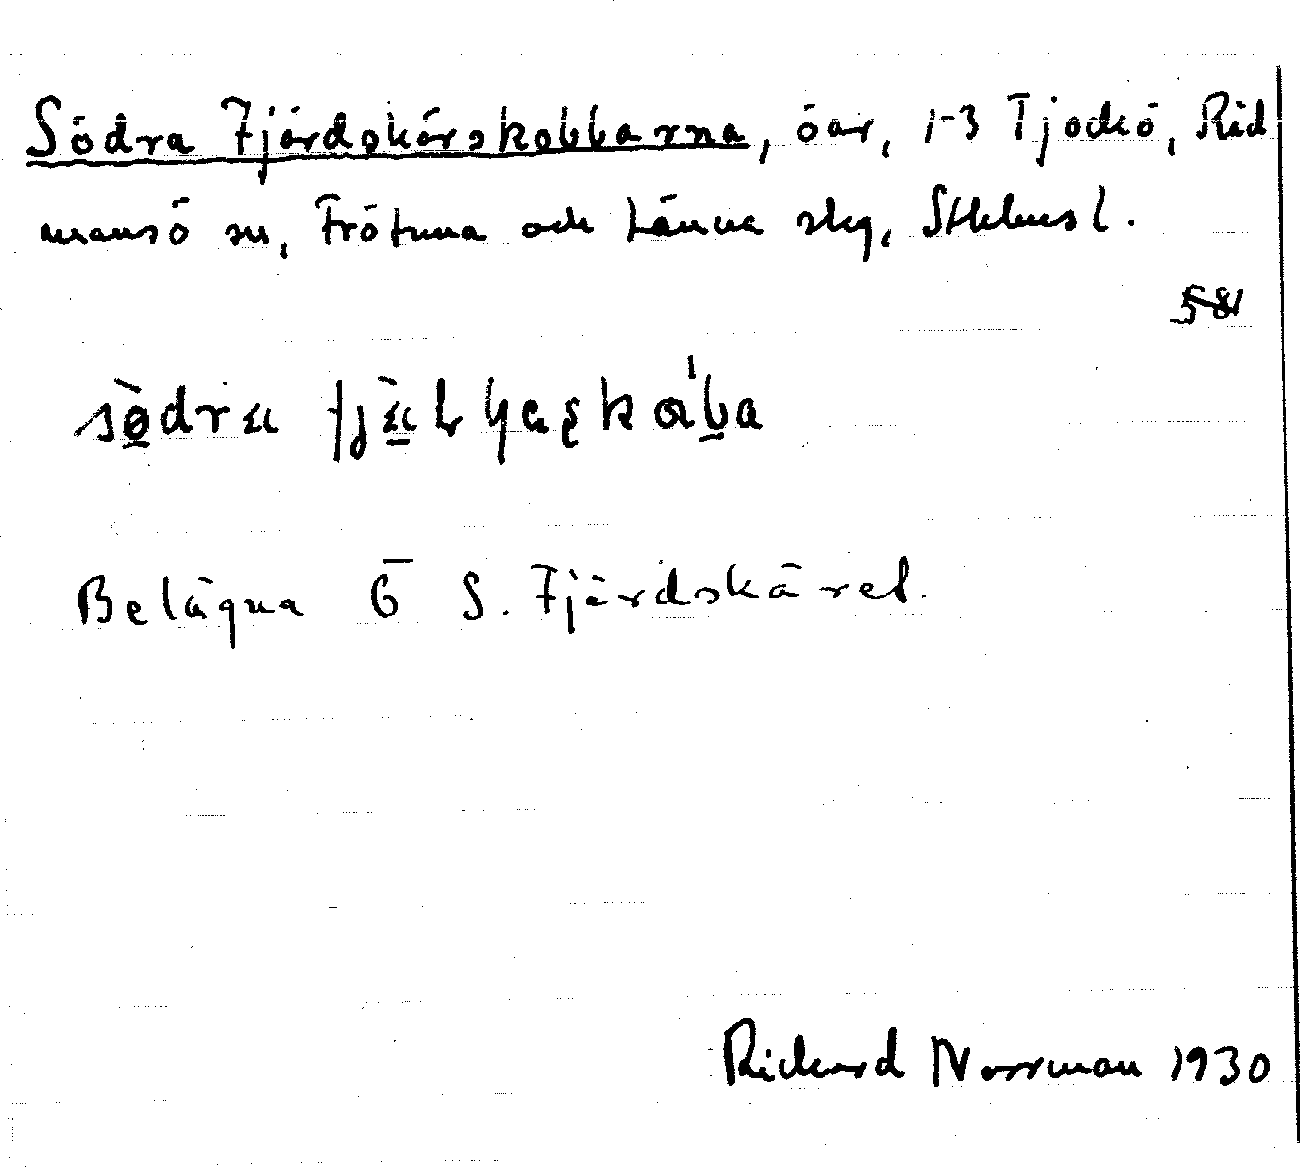 Södra Fjärdskärskobbarna, öar, 1-3 Tjockö, Räd
mansö sn, Frötuna och Länna skg, Sthlms l.
581
Belägna Ö S. Fjärdskäret.
Rickard Norrman 1930